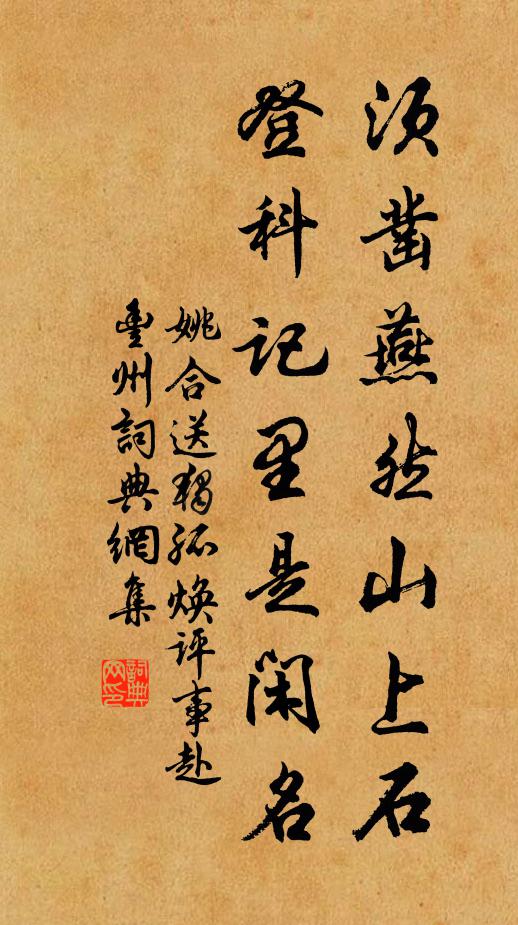 须凿燕然山上石
登科记里是闲名
姚合送獨孤焕评事赴
豐州詞典網集
詞典
网印